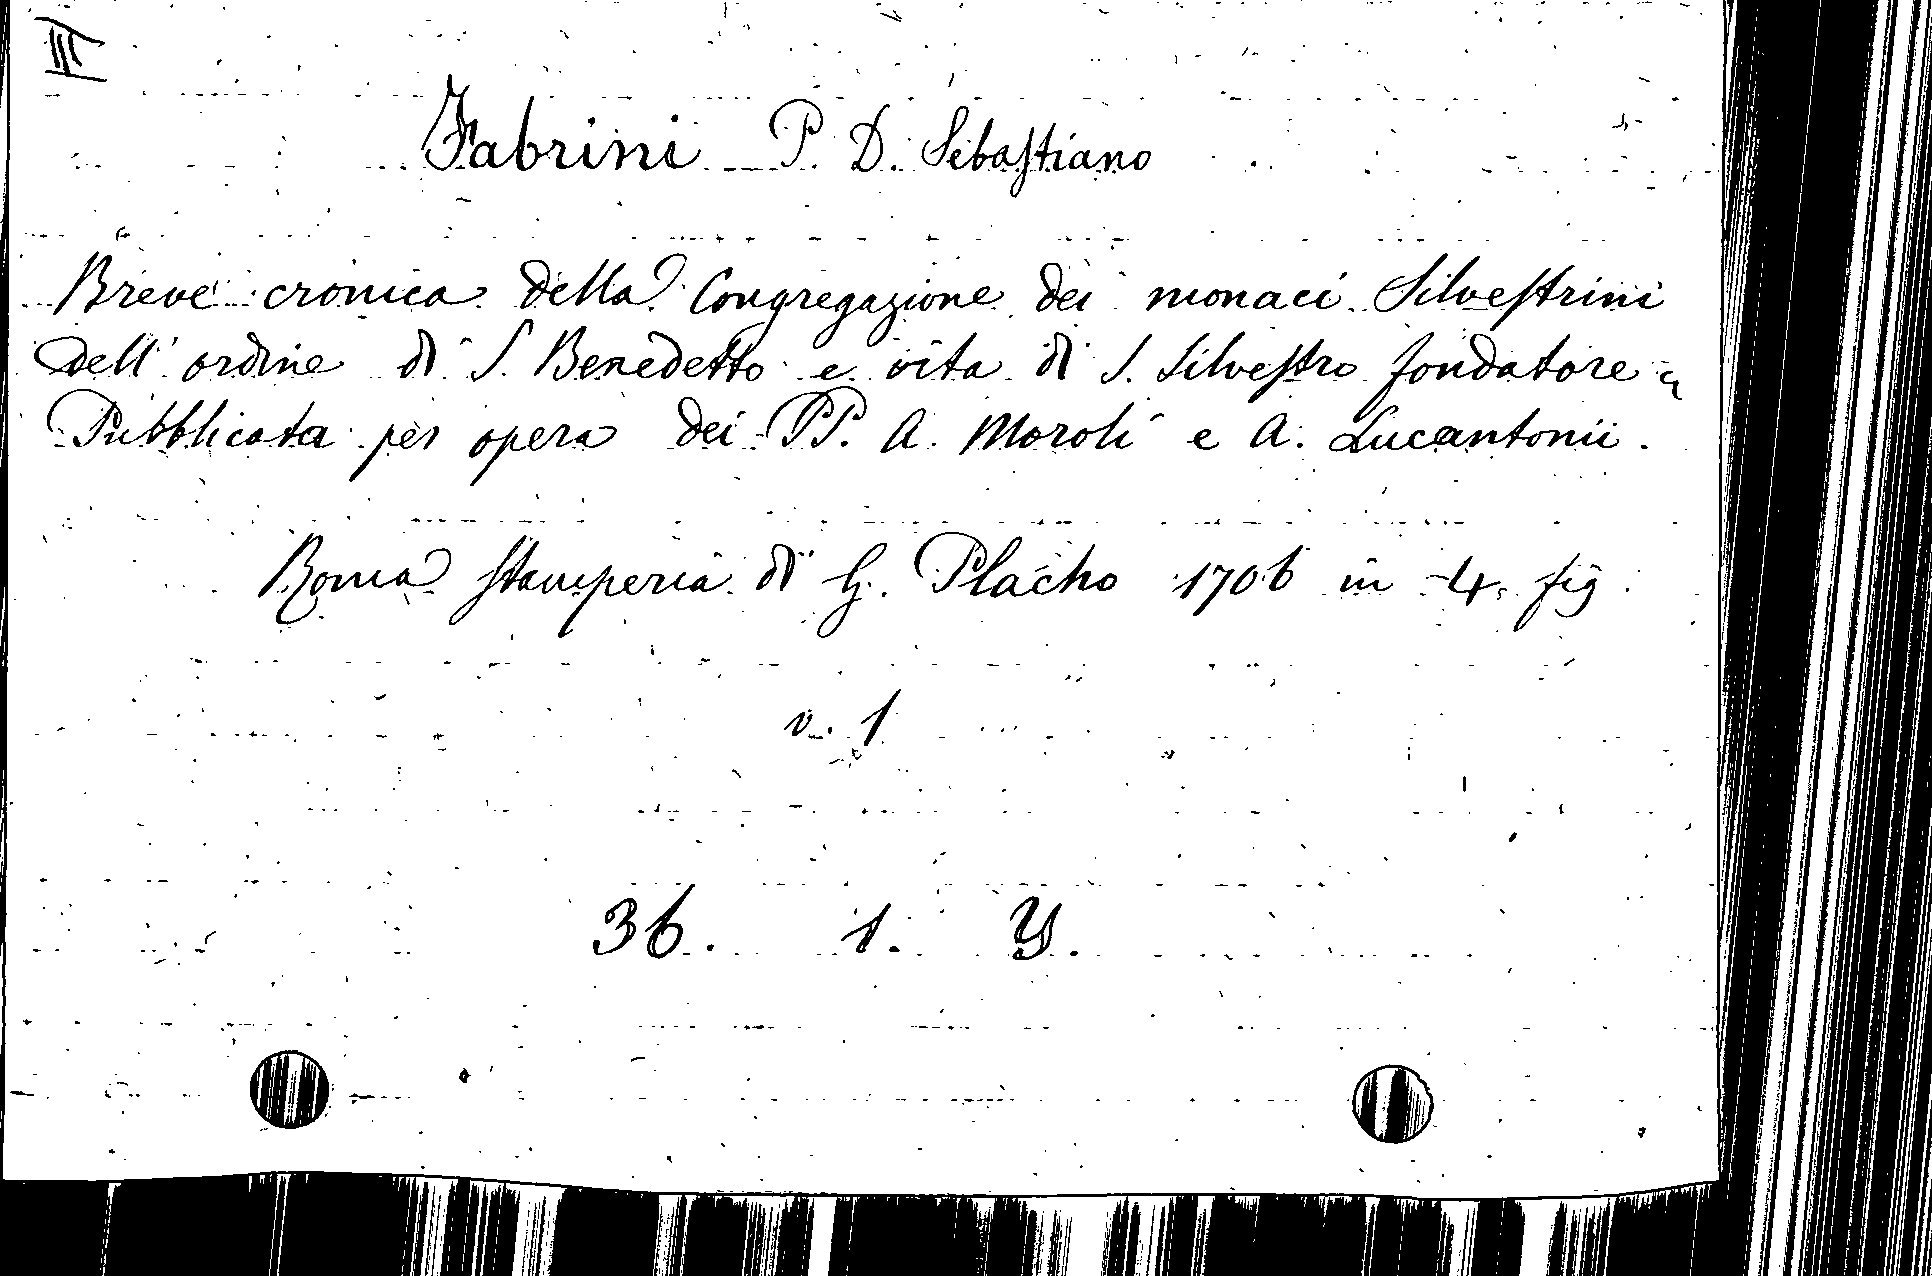 III
Fabrini P. D. Sebastiano
Breve cronica della Congregazione dei monaci Silvestrini
dell' ordine di S. Benedetto e vita di S. Silvestro fondatore
Pubblicata per opera dei PP. A. Moroli e A. Lucantonii.
Roma stamperia di G. Placho 1706 in 4. fig.
v. 1
36. 1. Y.